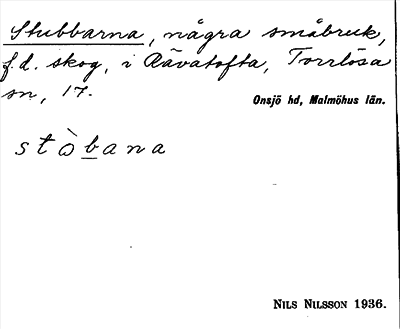 Stubbarna, några småbruk,
f.d. skog, i Rävatofta, Torrlösa
sn, 17.
Onsjö hd, Malmöhus län.
stòbana
NILS NILSSON 1936.